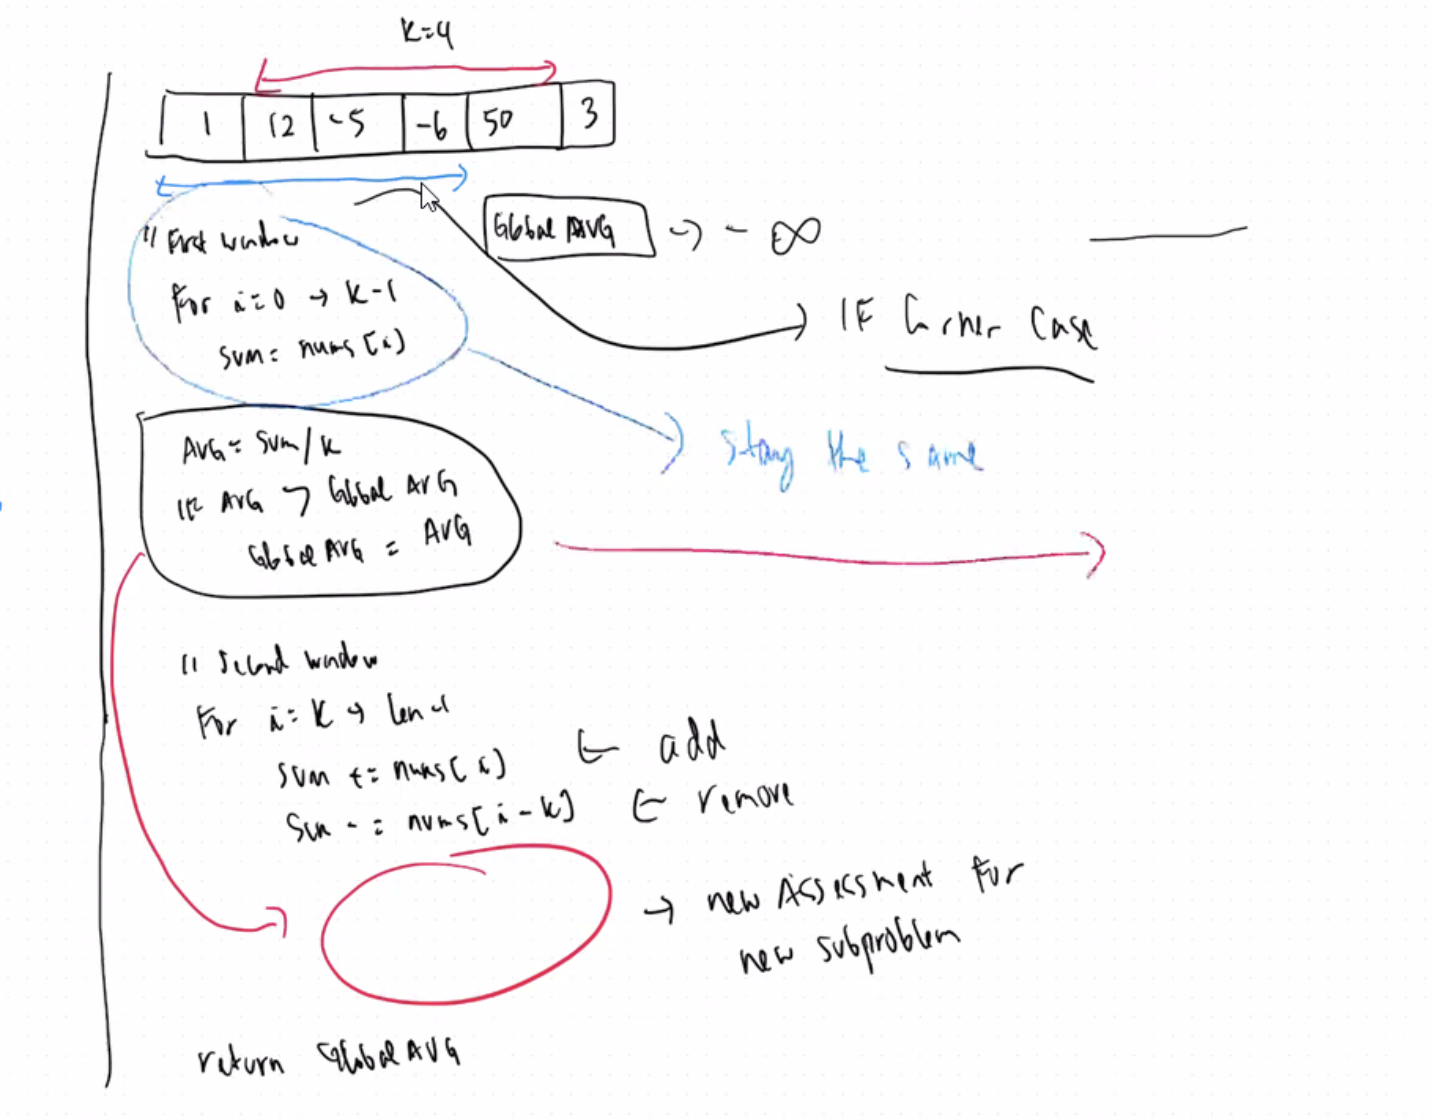 k=4
1 12 -5 -6 50 3
Global AVG → - ∞
// First window
For i=0 → k-1
sum = nums[i]
IF Corner Case
AVG = sum/k
IF AVG > Global AVG
Global AVG = AVG
stay the same
// Second window
For i=k → len-1
sum += nums[i] ← add
Sum -= nums[i-k] ← remove
→ new Assessment for
new subproblem
return Global AVG